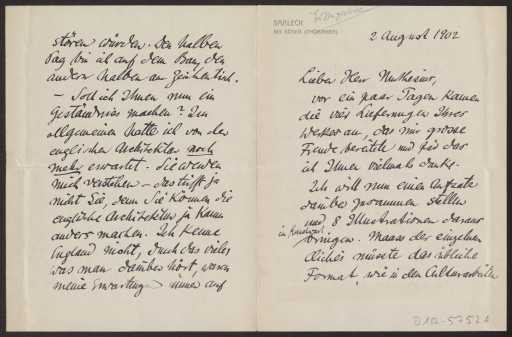 SAALECK
BEI KÖSEN (THÜRINGEN)
2 August 1902
Lieber Herr Muthesius,
vor ein paar Tagen kamen
die vier Lieferungen Ihres
Werkes an, das mir grosse
Freude bereitet und für das
ich Ihnen vielmals danke.
Ich will nun einen Aufsatz
darüber zusammen stellen
und 8 Illustrationen daraus
im Kunstwart
bringen. Maass der einzelnen
Clichés müsste das übliche
Format, wie in den Culturarbeiten
D 102-5752 a
stören würden. Den halben
Tag bin ich auf dem Bau, den
andern halben am Zeichentisch.
— Soll ich Ihnen nun ein
Geständniss machen? Im
allgemeinen hatte ich von der
englischen Architektur noch
mehr erwartet. Sie werden
mich verstehen — das trifft ja
nicht Sie, denn Sie können die
englische Architektur ja kaum
anders machen. Ich kenne
England nicht, durch das vieles
was man darüber hört, waren
meine Erwartungen immer auf